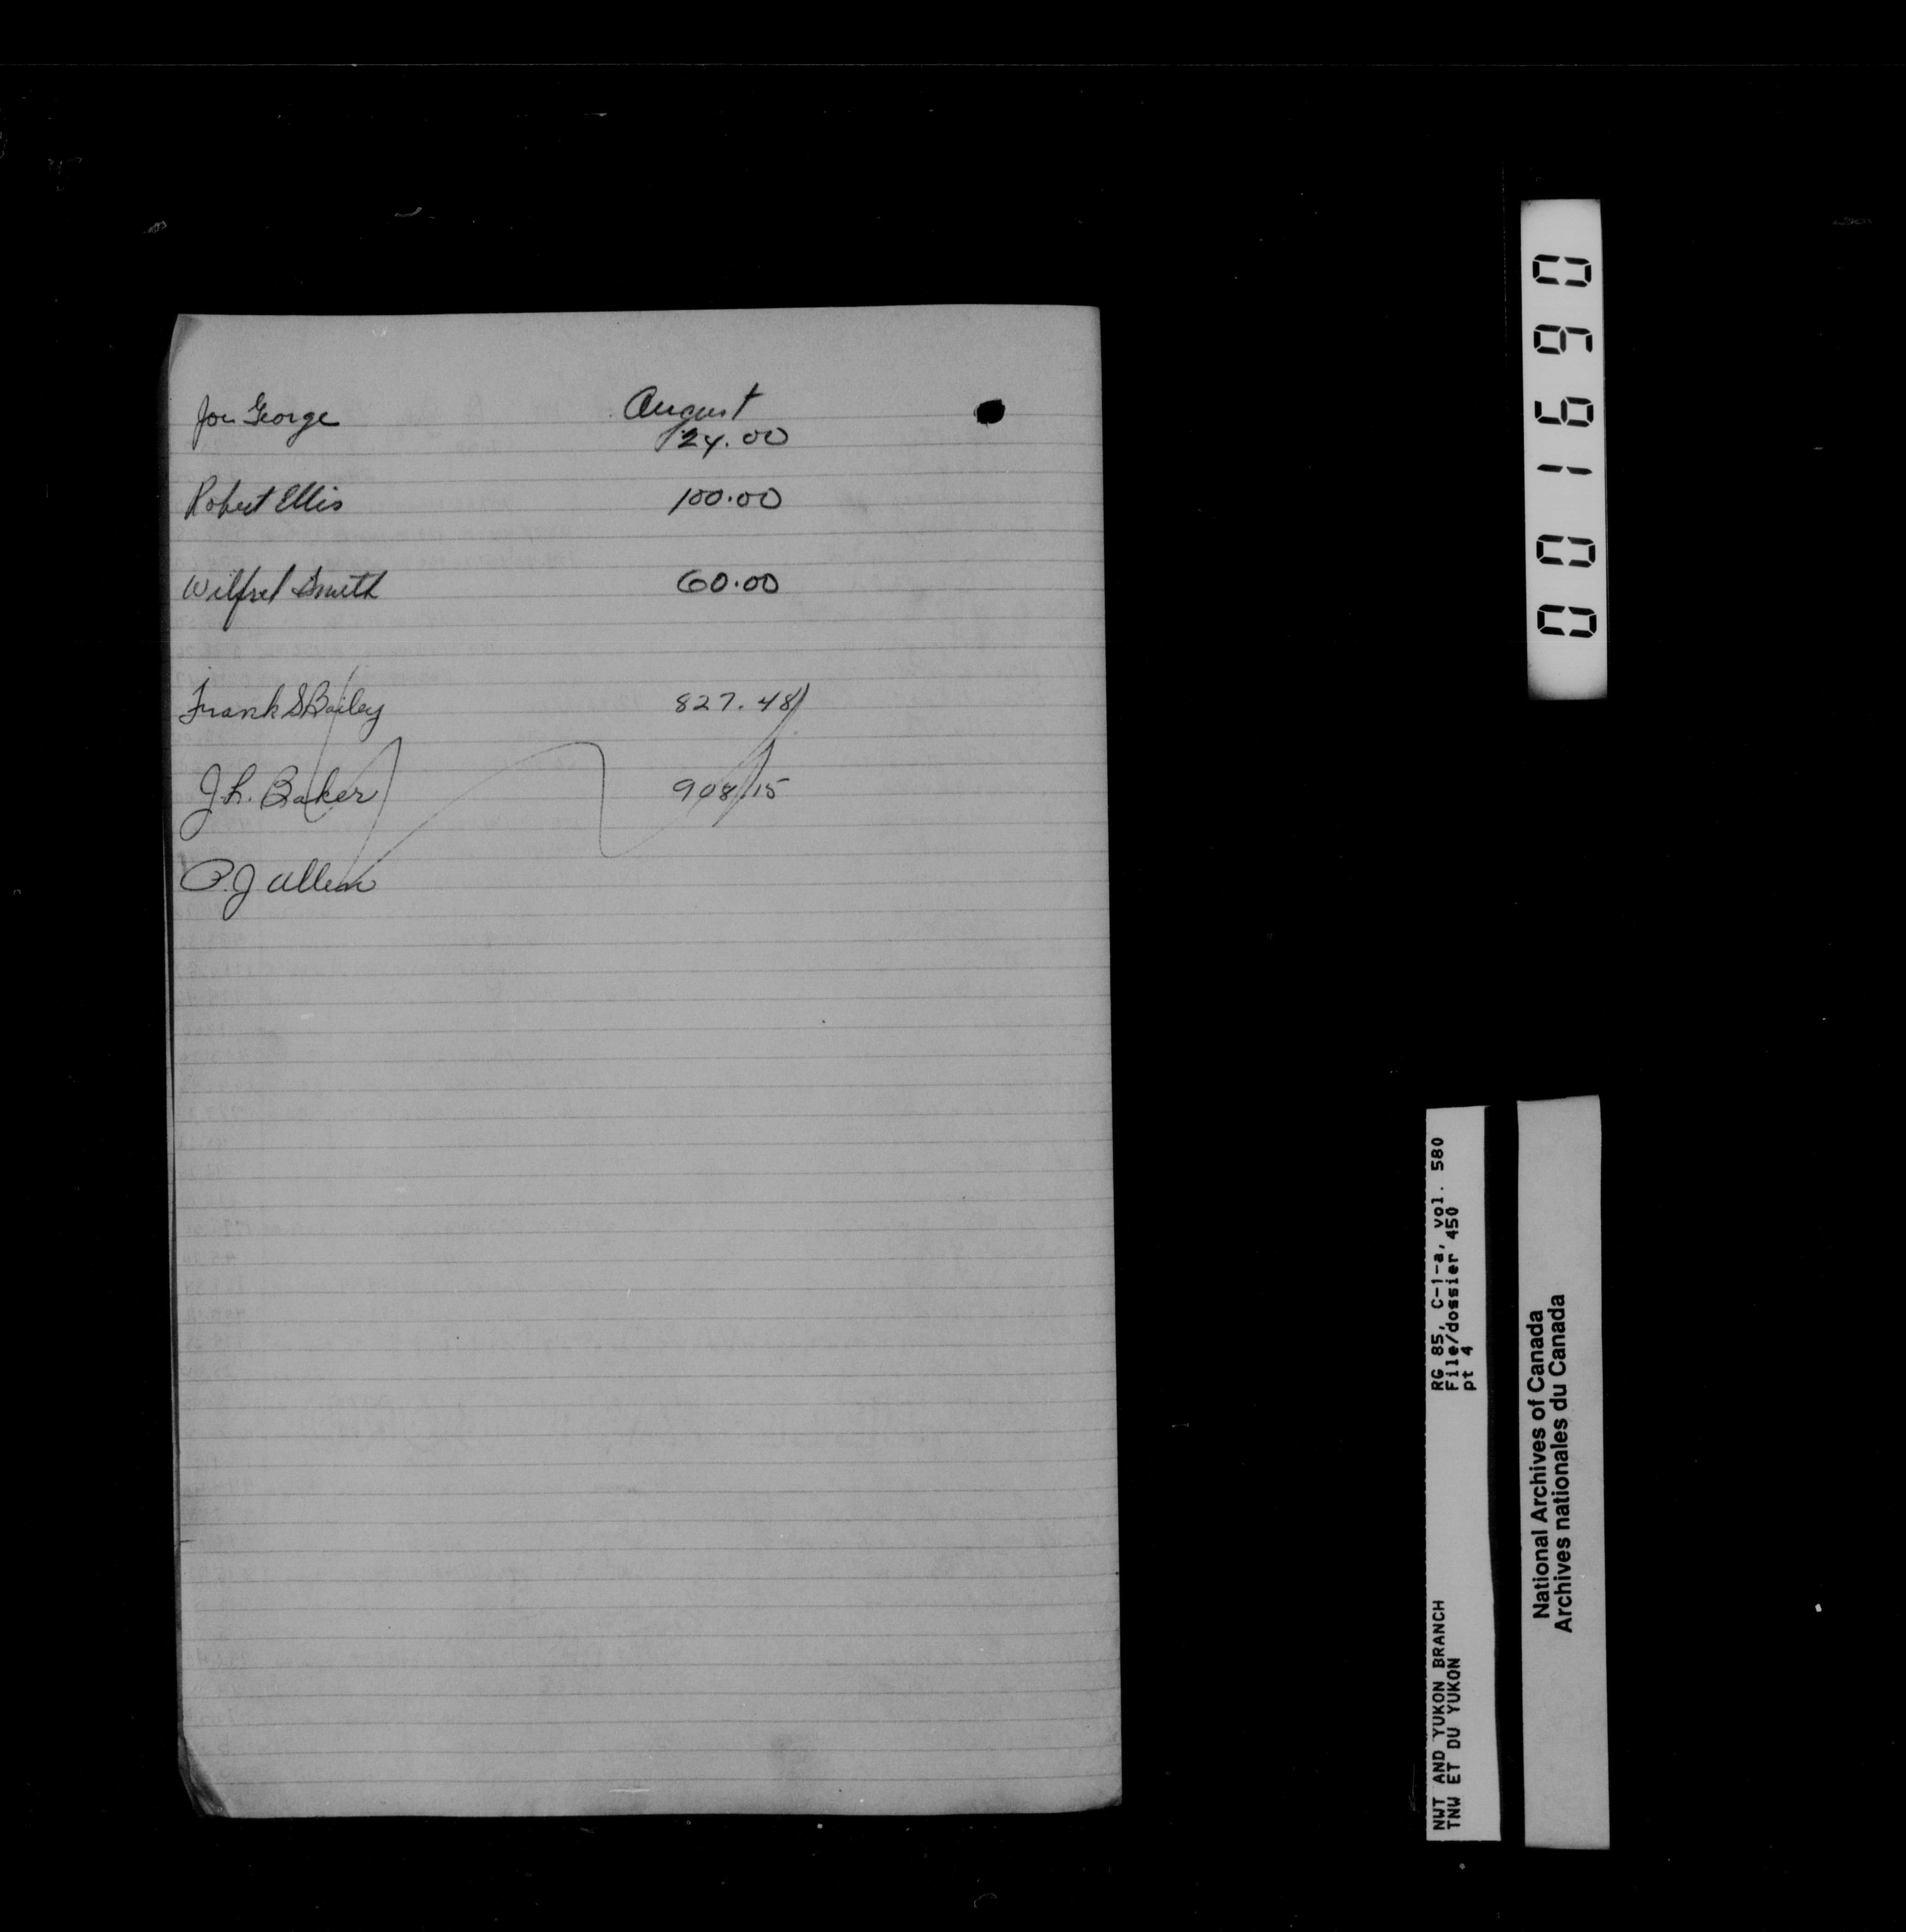 August
Joe George 24.00
Robert Ellis 100.00
Wilfred Smith 60.00
Frank S Bailey 827.48
J.h. Baker 908.15
P.J Allen
001690
RG 85, C-1-a, vol. 580
File/dossier 450
pt 4
NWT AND YUKON BRANCH
TNW ET DU YUKON
National Archives of Canada
Archives nationales du Canada